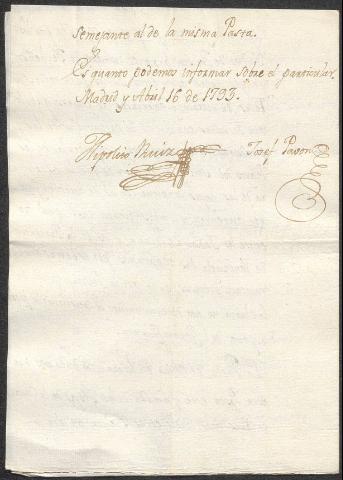 Semejante al de la misma Pasta.
Es quanto podemos informar sobre el particular.
Madrid y Abril 16 de 1793.
Hipolito Ruiz Josef Pavon